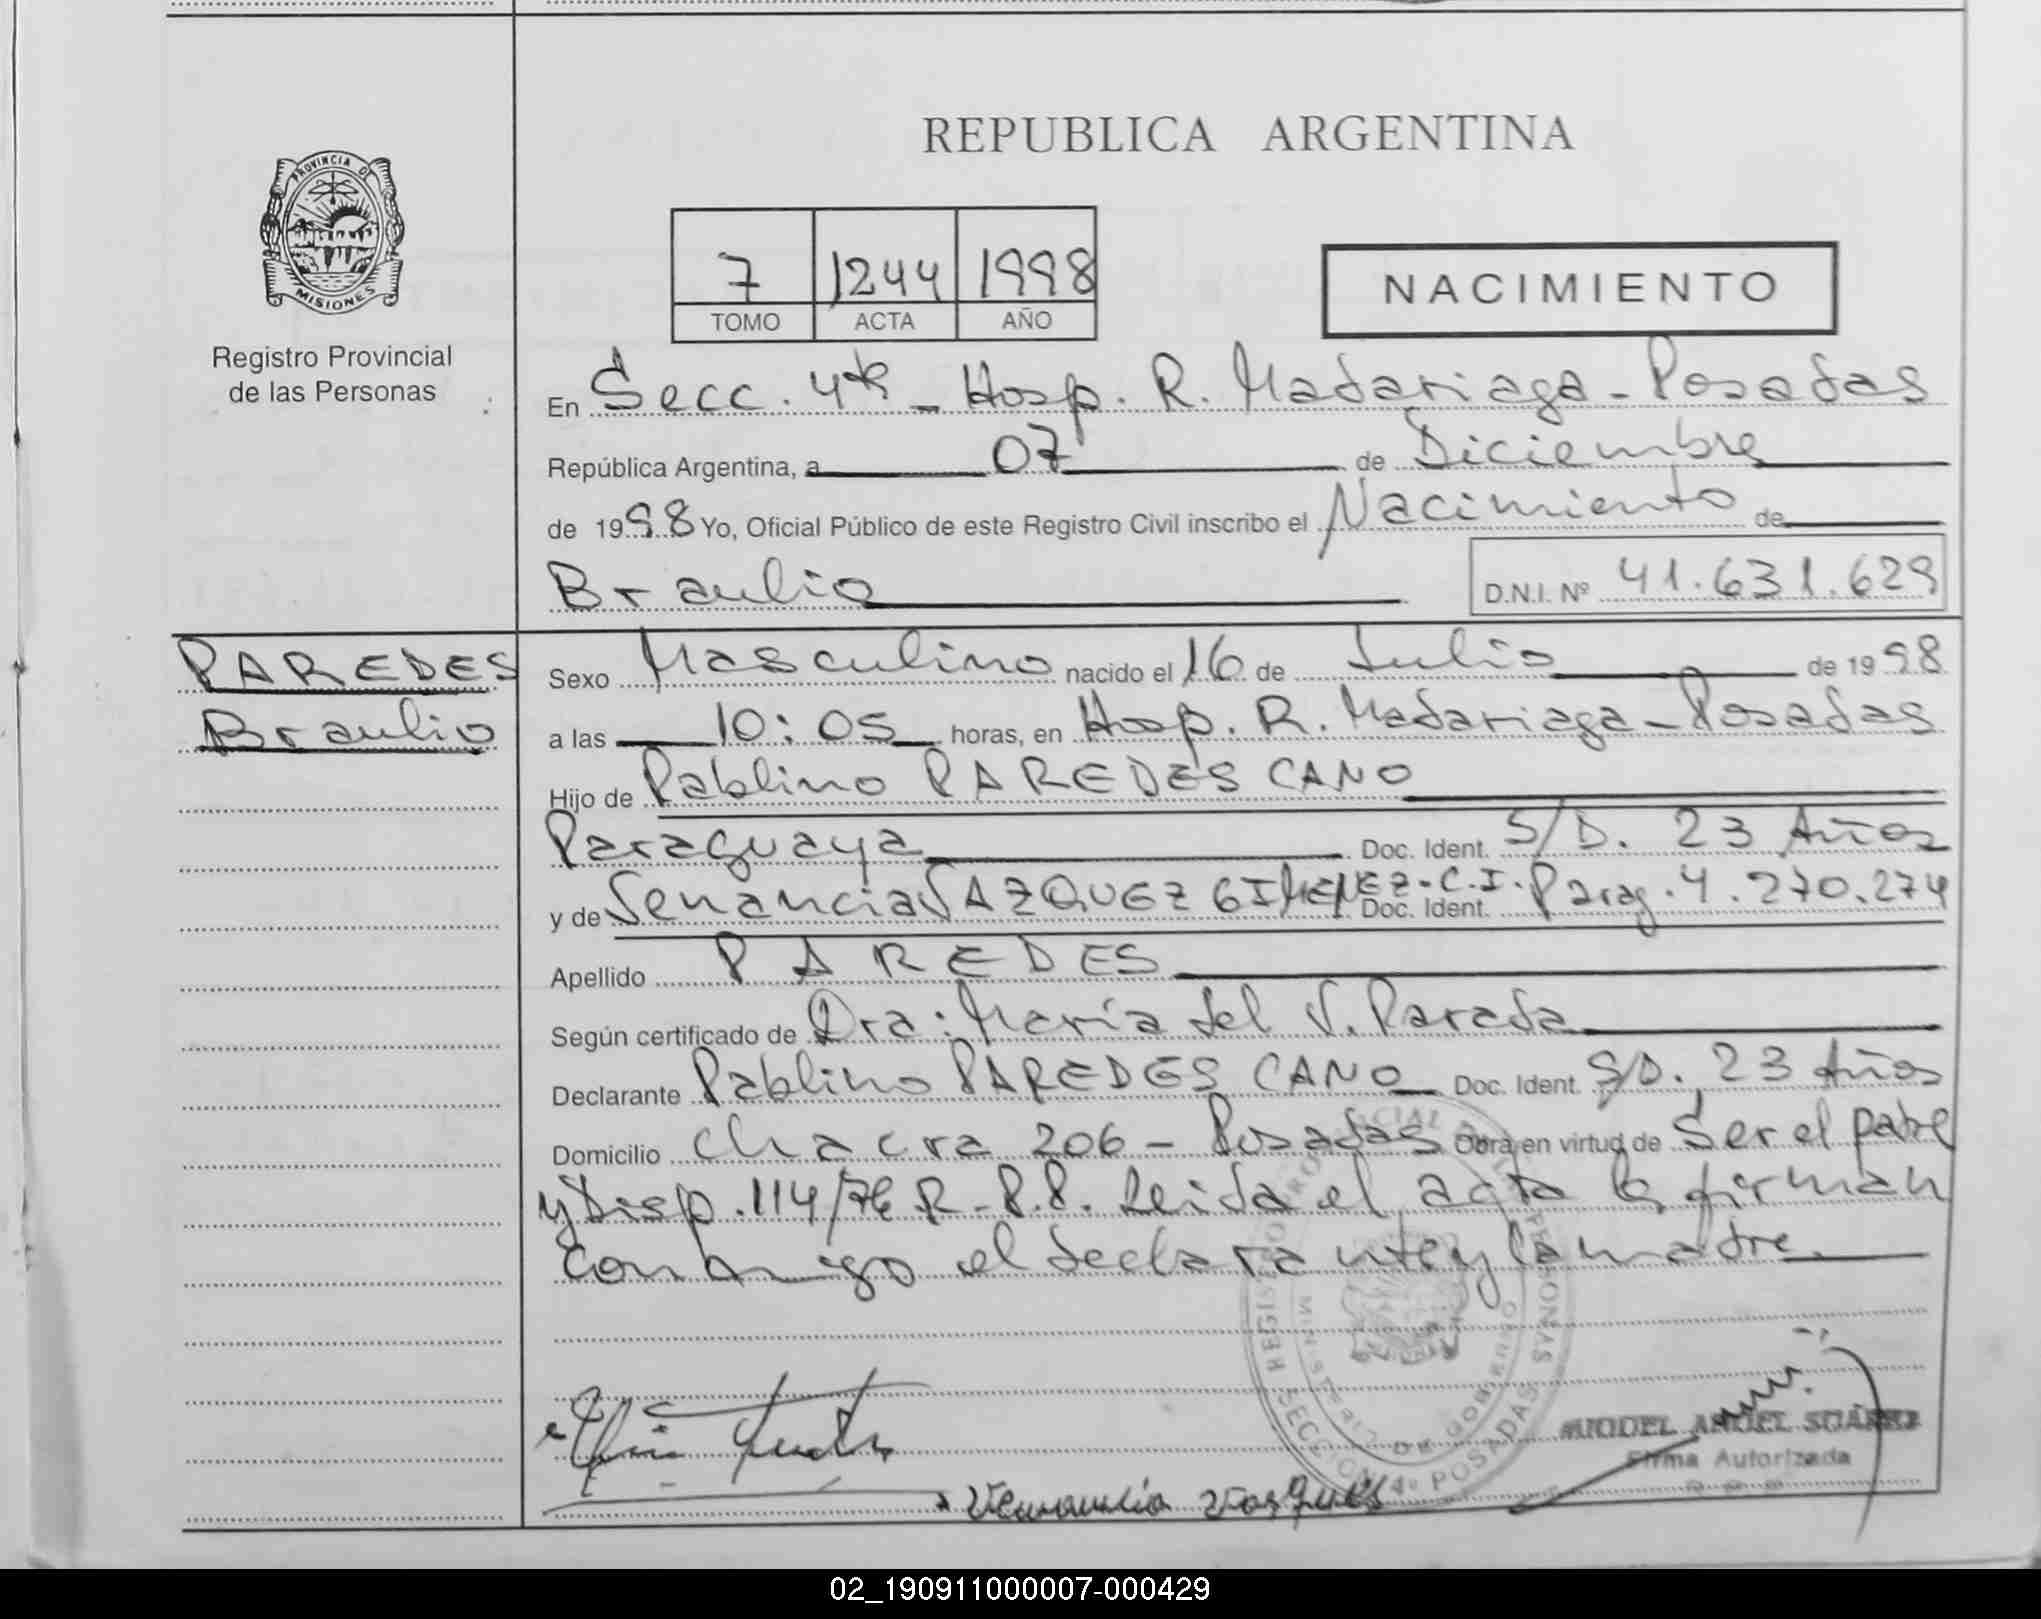 REPUBLICA ARGENTINA
PROVINCIA DE
MISIONES
Registro Provincial
de las Personas
7 1244 1998
TOMO ACTA AÑO
NACIMIENTO
En Secc. 4ta - Hosp. R. Madariaga - Posadas
República Argentina, a 07 de Diciembre
de 1998 Yo, Oficial Público de este Registro Civil inscribo el Nacimiento de
Braulio D.N.I. Nº 41.631.629
PAREDES
Braulio
Sexo Masculino nacido el 16 de Julio de 1998
a las 10:05 horas, en Hosp. R. Madariaga - Posadas
Hijo de Pablino PAREDES CANO
Paraguaya Doc. Ident. S/D. 23 Años
y de Venancia VAZQUEZ GIMENEZ - C.I. Doc. Ident. Parag. 4.270.274
Apellido PAREDES
Según certificado de Dra: María del V. Parada
Declarante Pablino PAREDES CANO Doc. Ident. S/D. 23 Años
Domicilio Chacra 206 - Posadas Obra en virtud de Ser el padre
y Disp. 114/76 R.P.P. Leida el acta la firman
conmigo el declarante y la madre.
REGISTRO PROVINCIAL DE LAS PERSONAS
MINISTERIO DE GOBIERNO
SECCION 4º POSADAS
ANGEL SUÁREZ
Firma Autorizada
02_190911000007-000429